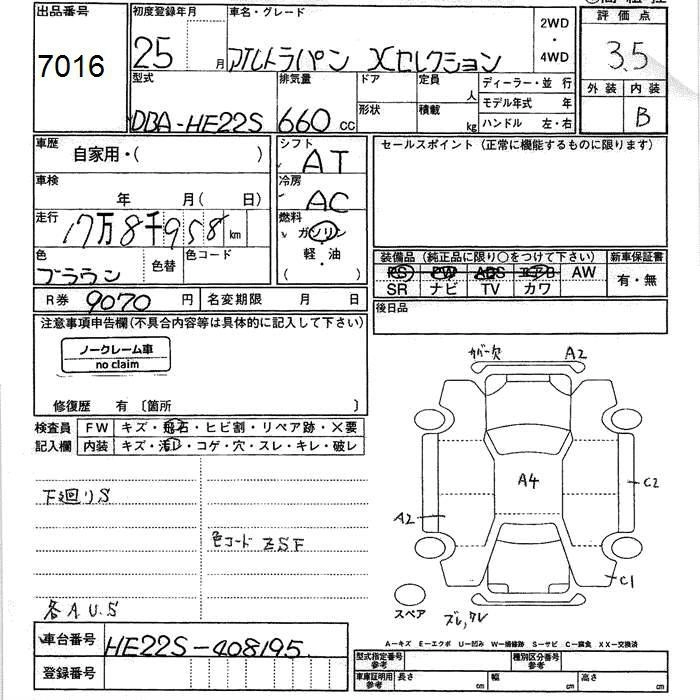 出品番号
7016
初度登録年月
25 月
車名・グレード
アルトラパン Xセレクション
2WD
・
4WD
評価点
3.5
外装 内装
B
型式
DBA-HE22S
排気量
660 cc
ドア
形状
定員
人
積載
kg
ディーラー・並行
モデル年式 年
ハンドル 左・右
車歴
自家用・( )
車検
年 月( 日)
走行
17万8千958 km
色
ブラウン
色替
色コード
シフト
AT
冷房
AC
燃料
ガソリン
軽・油
( ・ )
R券 9070 円
名変期限 月 日
セールスポイント (正常に機能するものに限ります)
装備品 (純正品に限り○をつけて下さい)
PS PW ABS エアB AW
SR ナビ TV カワ
新車保証書
有・無
後日品
注意事項申告欄(不具合内容等は具体的に記入して下さい)
ノークレーム車
no claim
修復歴 有 〔箇所 〕
検査員
記入欄
FW キズ・飛石・ヒビ割・リペア跡・×要
内装 キズ・汚レ・コゲ・穴・スレ・キレ・破レ
下廻りS
色コード ZSF
各A.U.S
カバー欠
A2
A4
C2
A2
C1
スペア
ズレ,ワレ
A－キズ E－エクボ U－凹み W－補修跡 S－サビ C－腐食 XX－交換済
車台番号
HE22S-408195
登録番号
型式指定番号
参考
種別区分番号
参考
車庫証明用
参考
長さ cm
幅 cm
高さ cm